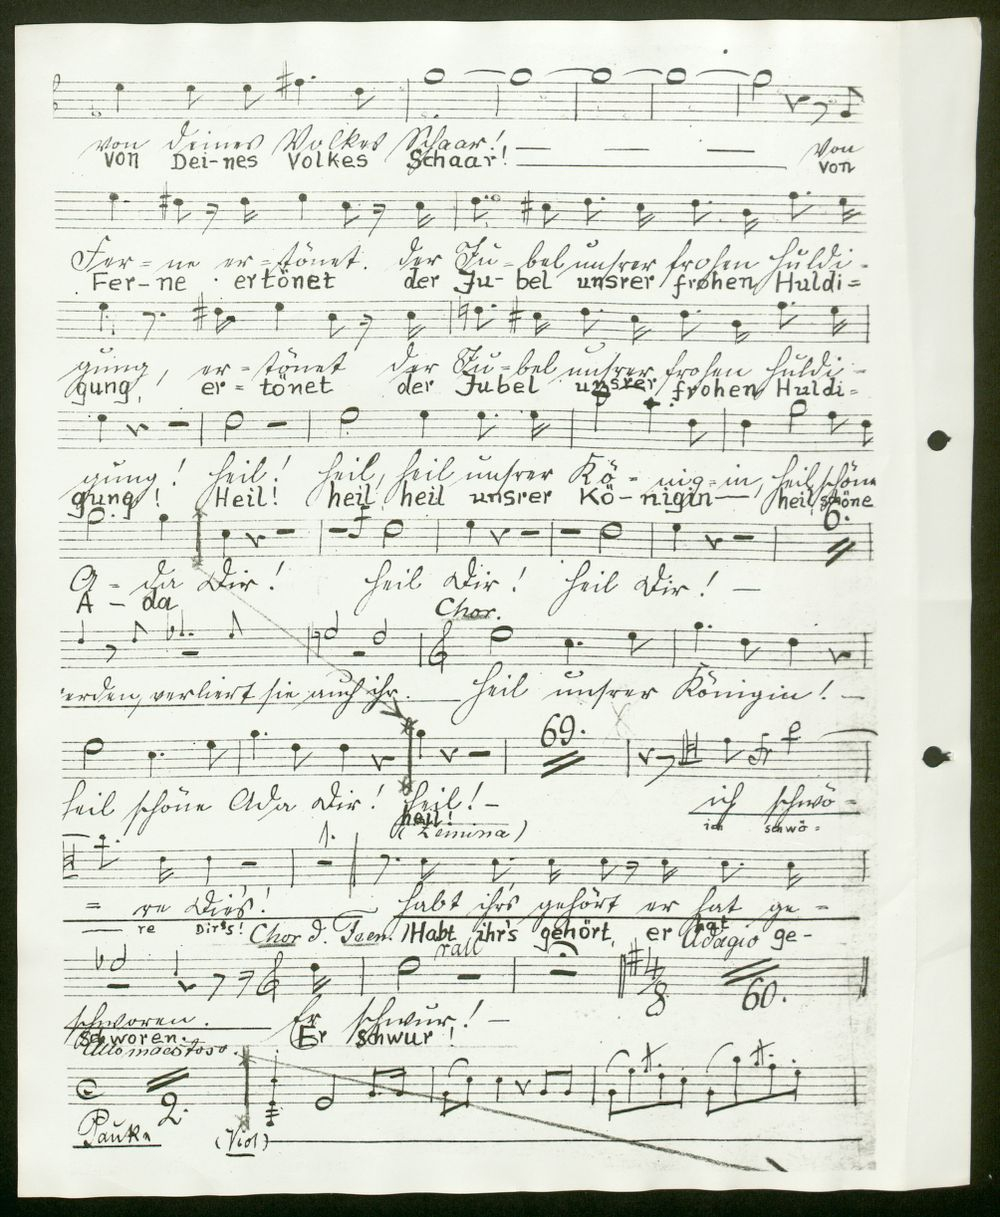 von deines Volkes Schaar! Von
von Dei-nes Volkes Schaar! von
Fer = ne er = tönet. der Ju = bel unsrer frohen Huldi =
Fer-ne ertönet der Ju-bel unsrer frohen Huldi=
gung, er = tönet der Ju = bel unsrer frohen Huldi =
gung, er-tönet der Jubel unsrer frohen Huldi=
gung! Heil! Heil, Heil unsrer Kö = nig = in, Heil, schöne
gung! Heil! heil, heil unsrer Kö-nigin— heil, schöne
6.
A = da Dir! Heil Dir! Heil Dir! —
A - da
Chor.
erden, verliert sie auch ihr. Heil unsrer Königin! —
69.
Heil schöne Ada Dir! Heil! — ich schwö =
heil! ich schwö =
(Zemina)
1.
= re Dir's! habt ihrs gehört er hat ge =
re Dir's! Chor d. Feen. Habt ihr's gehört, er hat ge-
rall Adagio
4/8 60.
schworen. Er schwur! —
schworen. Er schwur!
Allo maestoso.
2.
Pauke (Viol)